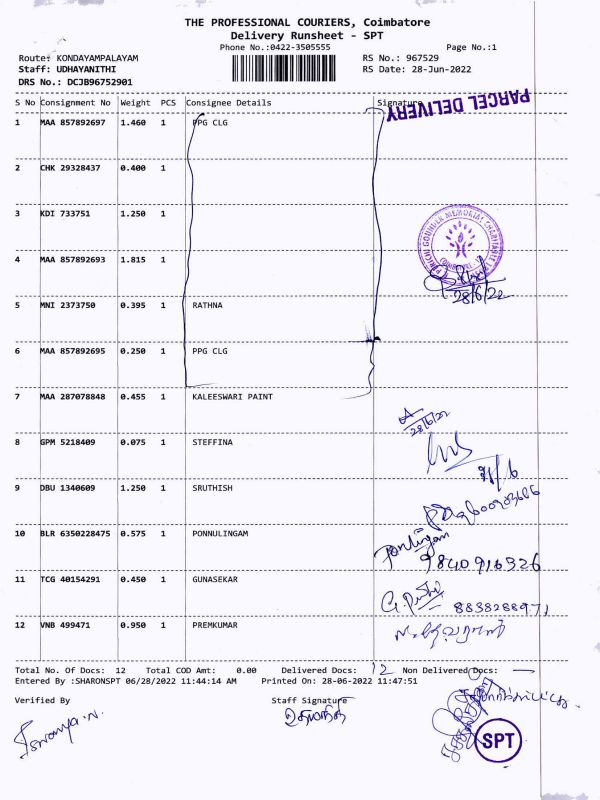 THE PROFESSIONAL COURIERS, Coimbatore
Delivery Runsheet - SPT
Phone No.:0422-3505555
Page No.:1
Route: KONDAYAMPALAYAM
RS No.: 967529
Staff: UDHAYANITHI
RS Date: 28-Jun-2022
DRS No.: DCJB96752901
S No Consignment No Weight PCS Consignee Details Signature
PARCEL DELIVERY
1 MAA 857892697 1.460 1 PPG CLG
2 CHK 29328437 0.400 1
3 KDI 733751 1.250 1
4 MAA 857892693 1.815 1
28/6/22
5 MNI 2373750 0.395 1 RATHNA
6 MAA 857892695 0.250 1 PPG CLG
7 MAA 287078848 0.455 1 KALEESWARI PAINT
28/6/22
8 GPM 5218409 0.075 1 STEFFINA
9 DBU 1340609 1.250 1 SRUTHISH
10 BLR 6350228475 0.575 1 PONNULINGAM
9840916326
11 TCG 40154291 0.450 1 GUNASEKAR
8838288971
12 VNB 499471 0.950 1 PREMKUMAR
Total No. Of Docs: 12 Total COD Amt: 0.00 Delivered Docs: 12 Non Delivered Docs: —
Entered By :SHARONSPT 06/28/2022 11:44:14 AM Printed On: 28-06-2022 11:47:51
Verified By Staff Signature
SPT